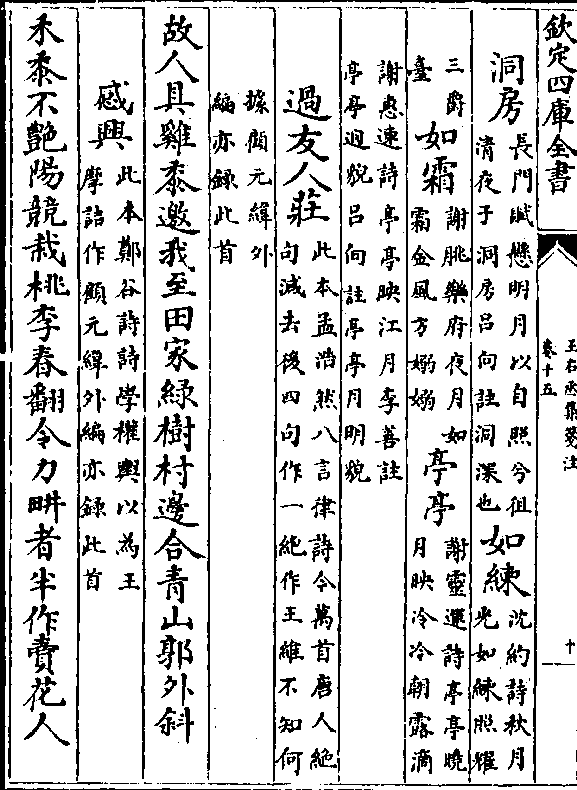 欽定四庫全書
王右丞集箋注
卷十五
十
洞房長門賦懸明月以自照兮徂清夜于洞房呂向註洞深也如練沈約詩秋月光如練照耀
三爵臺如霜謝朓樂府夜月如霜金風方嫋嫋亭亭謝靈運詩亭亭曉月映泠泠朝露滴
謝惠連詩亭亭映江月李善註亭亭迥貌呂向註亭亭月明貌
過友人莊此本孟浩然八言律詩今萬首唐人絶句減去後四句作一絶作王維不知何
據顧元緯外編亦録此首
故人具雞黍邀我至田家緑樹村邊合青山郭外斜
感興此本鄭谷詩詩學權輿以為王摩詰作顧元緯外編亦録此首
禾黍不艷陽競栽桃李春翻令力畊者半作賣花人